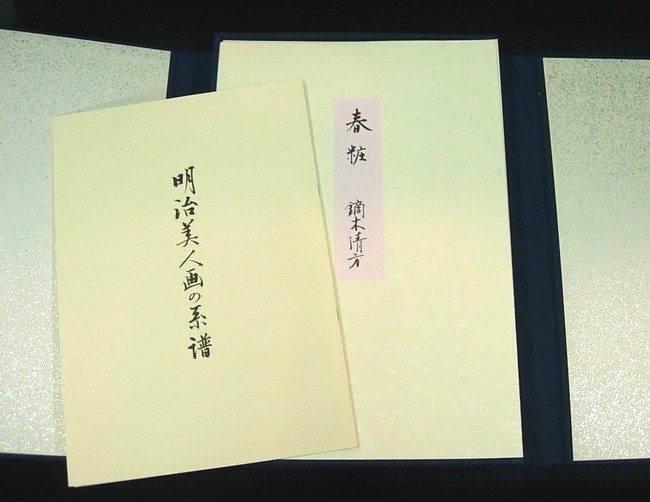 明治美人画の系譜
春粧
鏑木清方